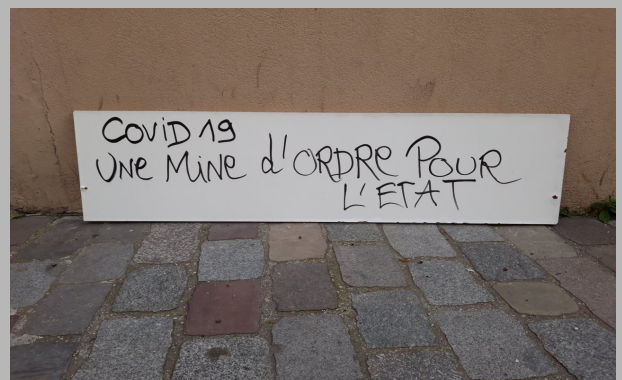 COViD 19
UNe MiNe d'ORDRe POUR
L'ETAT